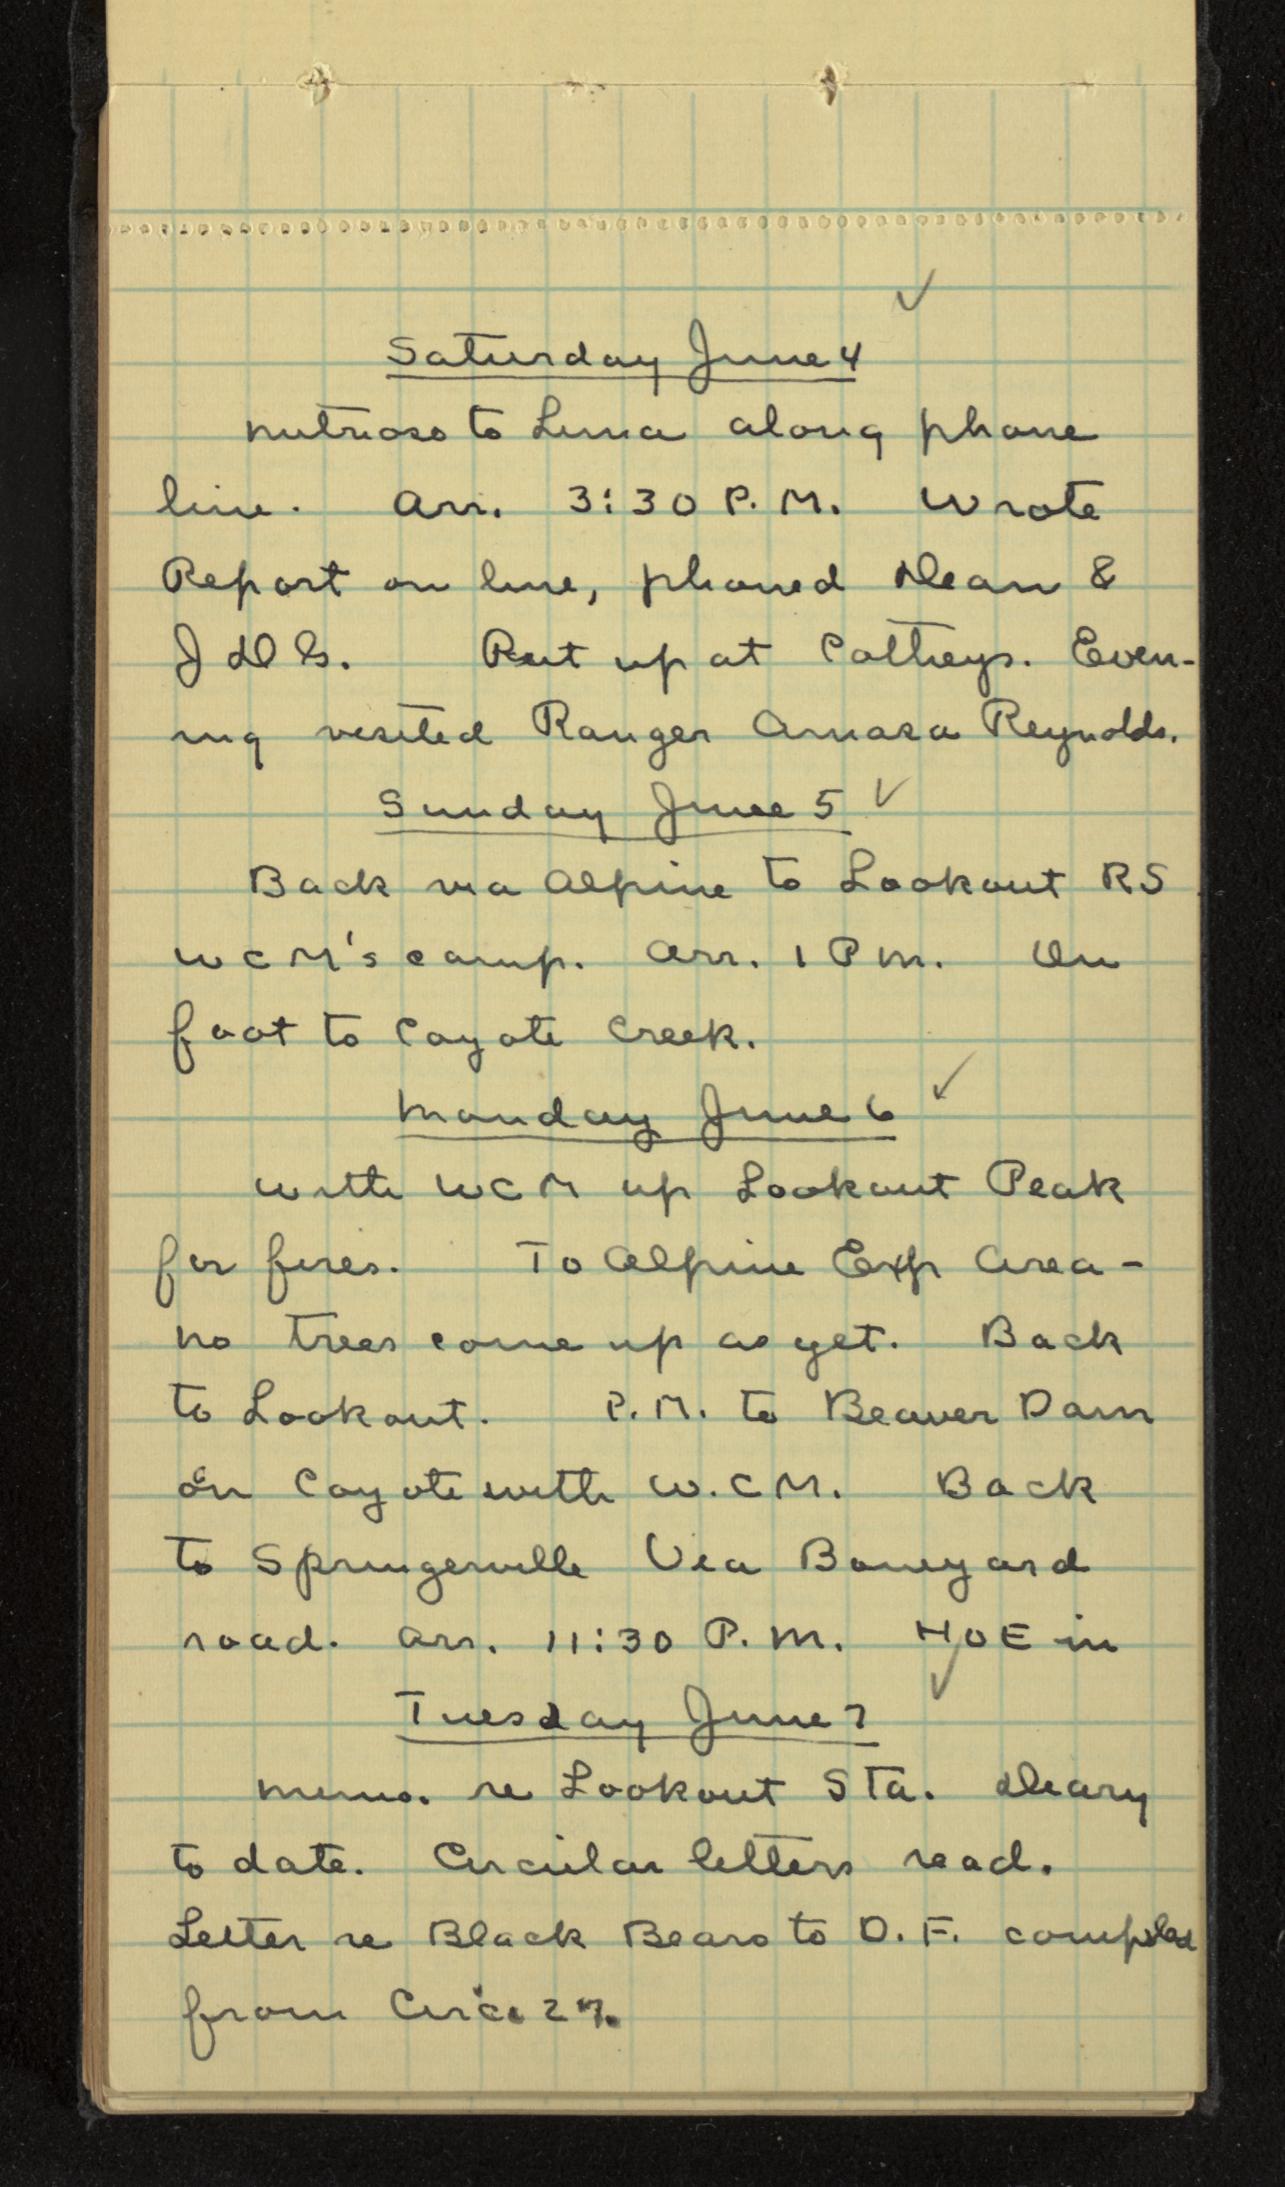 Saturday June 4 ✓
Nutrioso to Luna along phone
line. Arr. 3:30 P.M. Wrote
Report on line, phoned Dean &
J D G. Put up at Eve-
ning visited Ranger Amasa Reynolds.
Sunday June 5 ✓
Back via Alpine to Lookout RS
WCM's camp. Arr. 1 PM. On
foot to Coyote Creek.
Monday June 6 ✓
With WCM up Lookout Peak
for fires. To Alpine Exp Area -
no trees come up as yet. Back
to Lookout. P.M. to Beaver Dam
on Coyote with W.C.M. Back
to Springerville Via Boneyard
road. Arr. 11:30 P.M. in
Tuesday June 7 ✓
Memo. re Lookout Sta. Diary
to date. Circular letters read.
Letter re Black Bears to D. F.
from